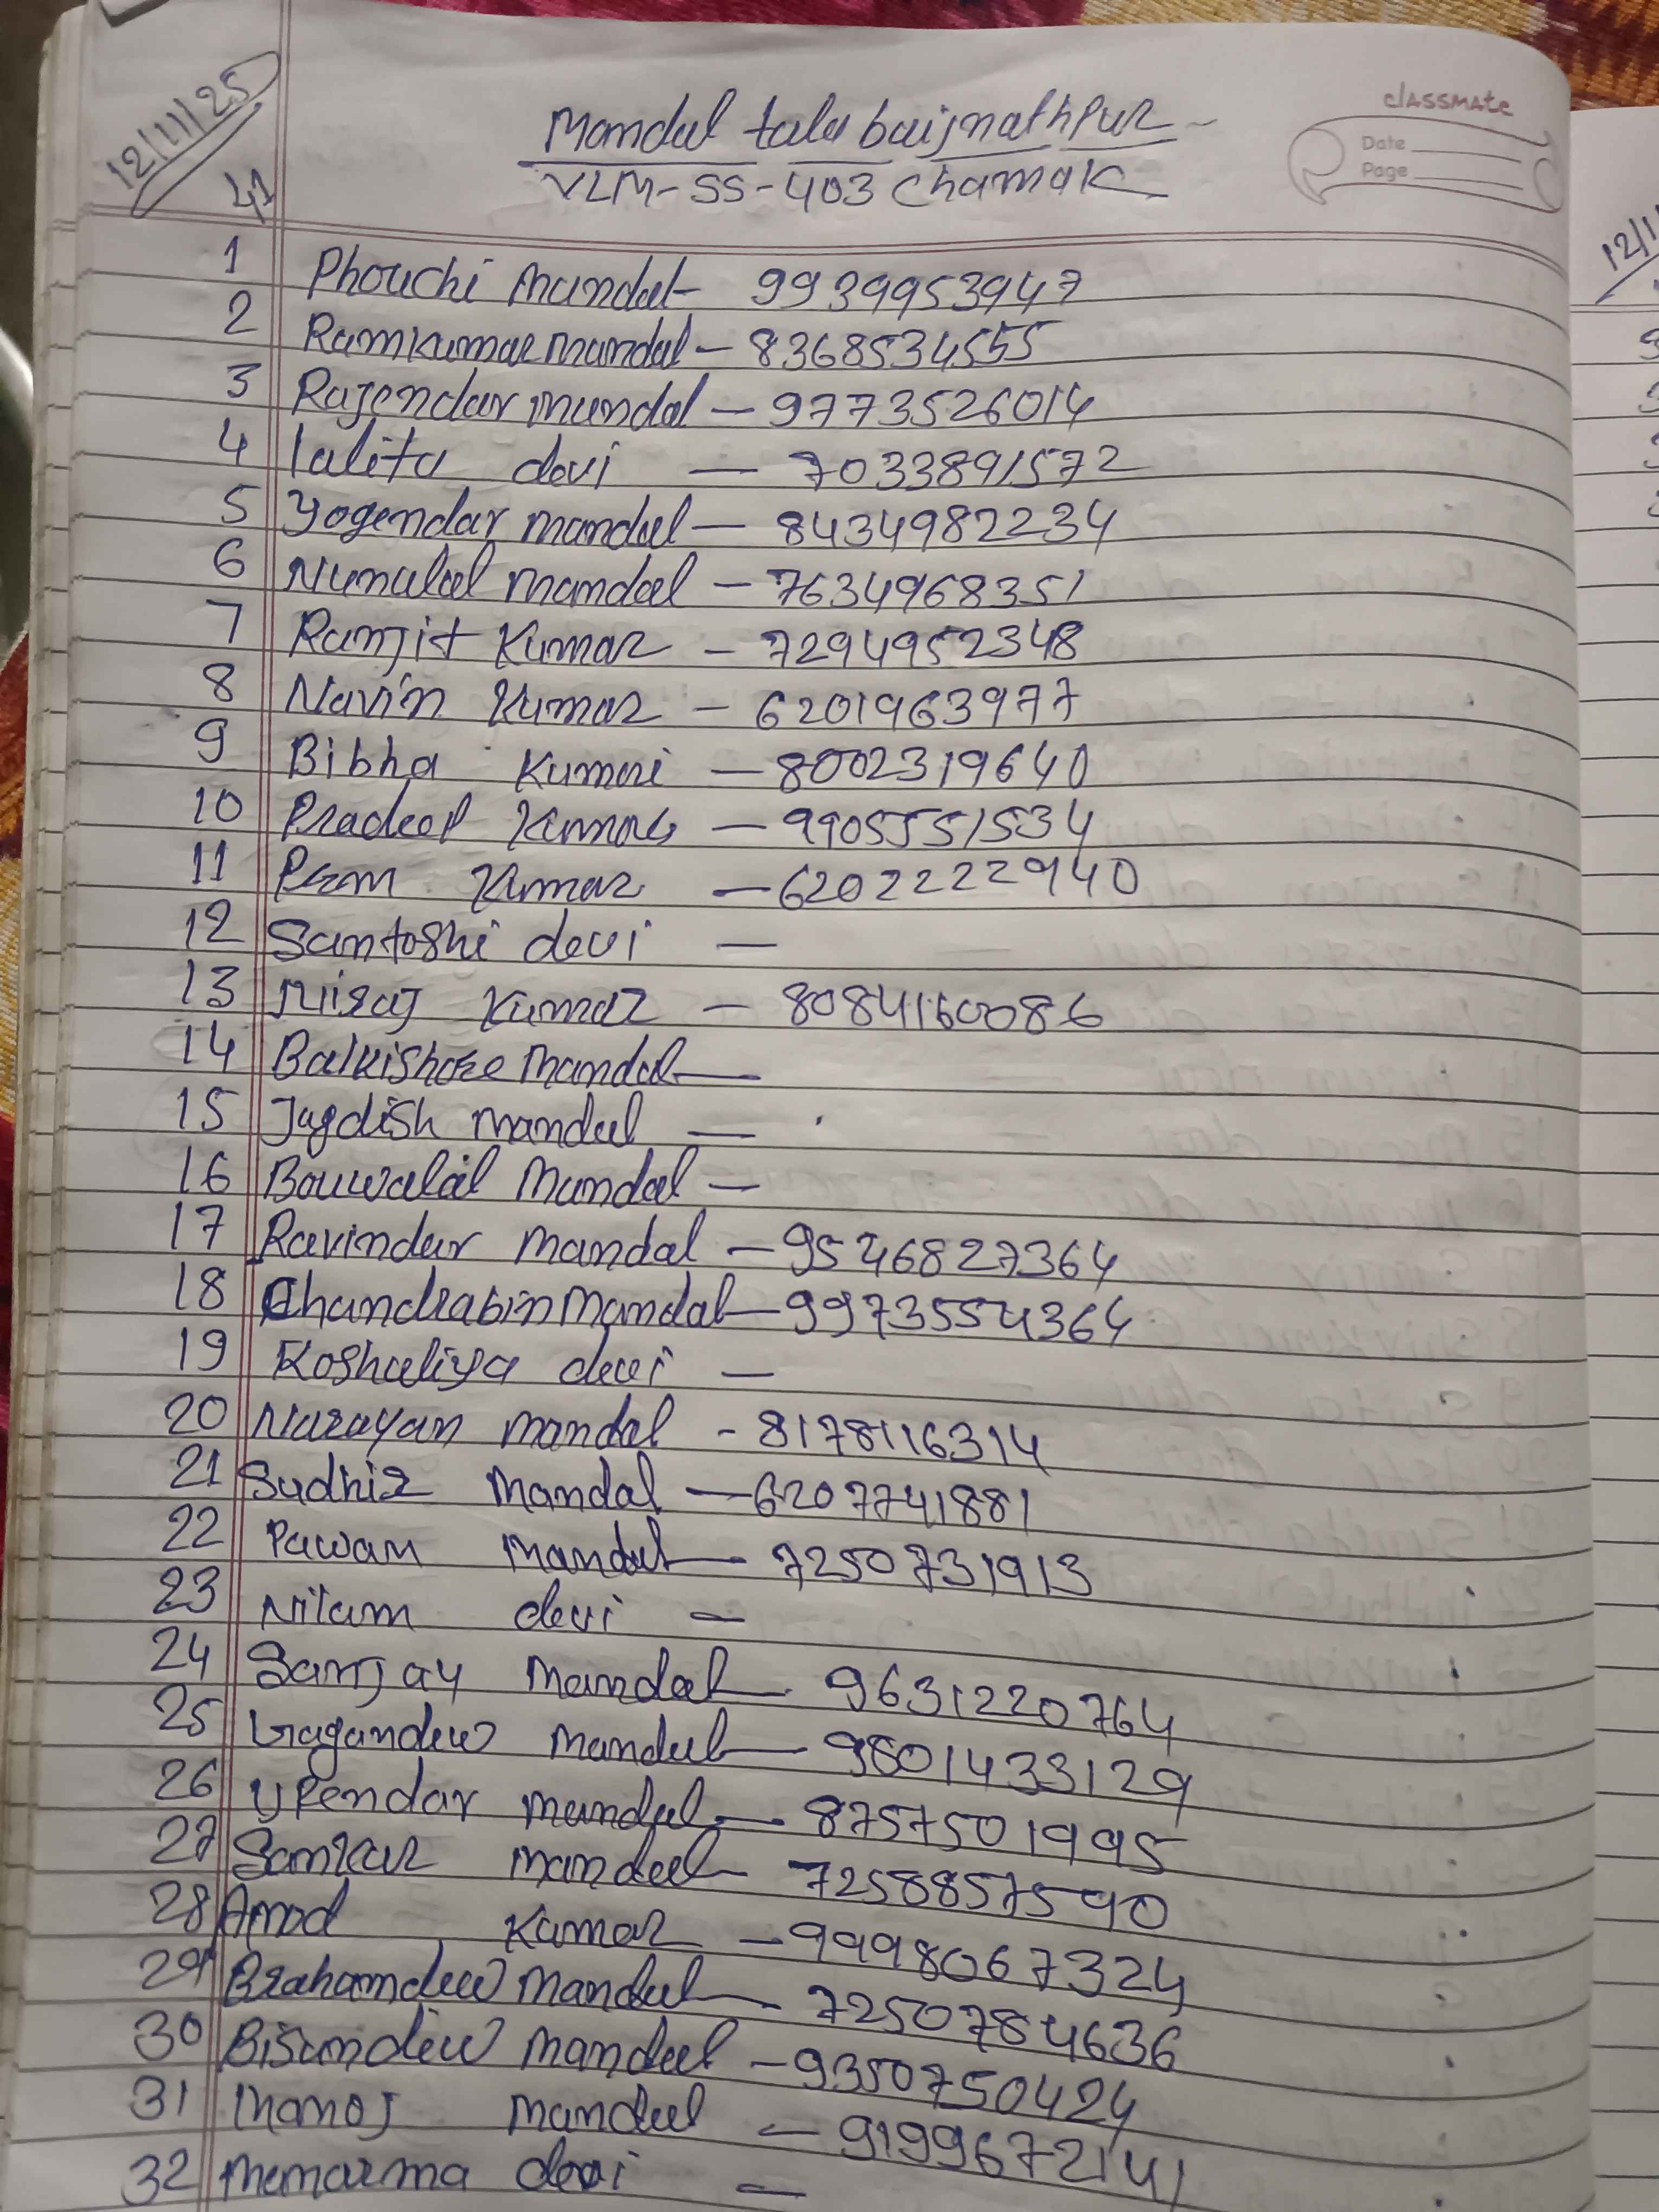 12/11/25
41
Mandal tala baijnathpur
VLM-SS-403 Chamak
classmate
Date
Page
1 Phouchi Mandal - 9939953947
2 Ramkumar mandal - 8368534555
3 Rajendar mandal - 9773526014
4 lalita devi - 7033891572
5 Yogendar mandal - 8434982234
6 Nunalal mandal - 7634968351
7 Ranjit Kumar - 7294952348
8 Navin Kumar - 6201963977
9 Bibha Kumari - 8002319640
10 Pradeep Kumar - 9905551534
11 Prem Kumar - 6202222940
12 Santoshi devi -
13 Niraj Kumar - 8084160086
14 Balkishore Mandal -
15 Jagdish Mandal -
16 Bouwalal Mandal -
17 Ravindar Mandal - 9546827364
18 Chandrabin Mandal - 9973554364
19 Koshaliya devi -
20 Narayan mandal - 8178116314
21 Sudhir Mandal - 6207741881
22 Pawan Mandal - 7250731913
23 Nilam devi -
24 Sanjay Mandal - 9631220764
25 Gagandew Mandal - 9801433129
26 Upendar Mandal - 8757501995
27 Sankar Mandal - 7258857590
28 Amod Kumar - 9998067324
29 Brahamdew Mandal - 7250784636
30 Bisundew Mandal - 9350750424
31 Manoj Mandal - 9199672141
32 Memarma devi -